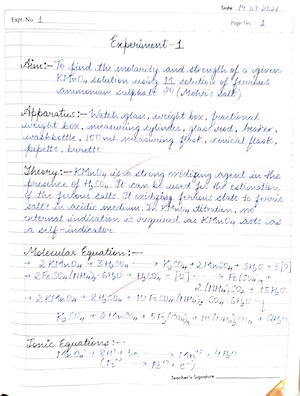 Date 14.07.2021
Expt. No. 1
Page No. 1
Experiment-1
Aim:- To find the molarity and strength of a given
KMnO4 solution using solution of ferrous
ammonium sulphate (Mohr's salt)
Apparatus:- Watch glass, weight box, fractional
weight box, measuring cylinder, glass rod, beaker,
wash bottle, 100 ml measuring flask, conical flask,
pipette, burette
Theory:- KMnO4 is a strong oxidising agent in the
presence of H2SO4. It can be used for the estimation
of the ferrous salts. It oxidising ferrous state to ferric
salts in acidic medium. In KMnO4 titration, no
internal indication is required as KMnO4 acts as
a self-indicator.
Molecular Equation:-
→ 2 KMnO4 + 3 H2SO4 → K2SO4 + 2 MnSO4 + 3H2O + 5[O]
→ 2 FeSO4 (NH4)2 6H2O + H2SO4 + [O] → Fe(SO4)3 +
2 (NH4)SO4 + 13 H2O
→ 2 KMnO4 + 8 H2SO4 + 10 FeSO4 (NH4)2 SO4 6H2O →
K2SO4 + 2 MnSO4 + 5 Fe2(SO4)3 + 10 (NH4)2SO4 + H2O
Ionic Equations:-
MnO4 + 8H+ + 5e → Mn+2 + 4H2O
(Fe+2 → Fe+3 + e-)
Teacher's Signature